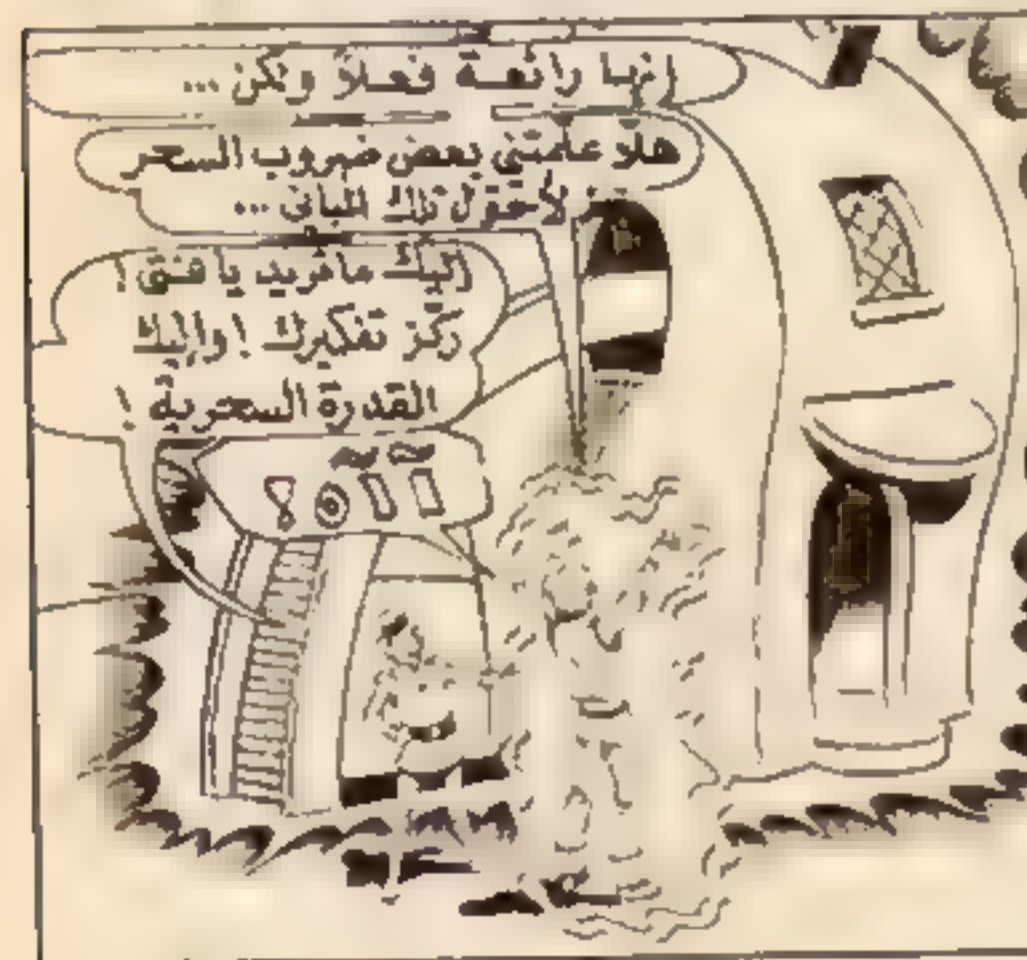 إنها رائعة فعلاً ولكن ...
هلاّ علمتني بعض ضروب السحر
لأحقق تلك المباني ...
إليك ما تريد يا فتق !
ركّز تفكيرك ! وإليك
القدرة السحرية !